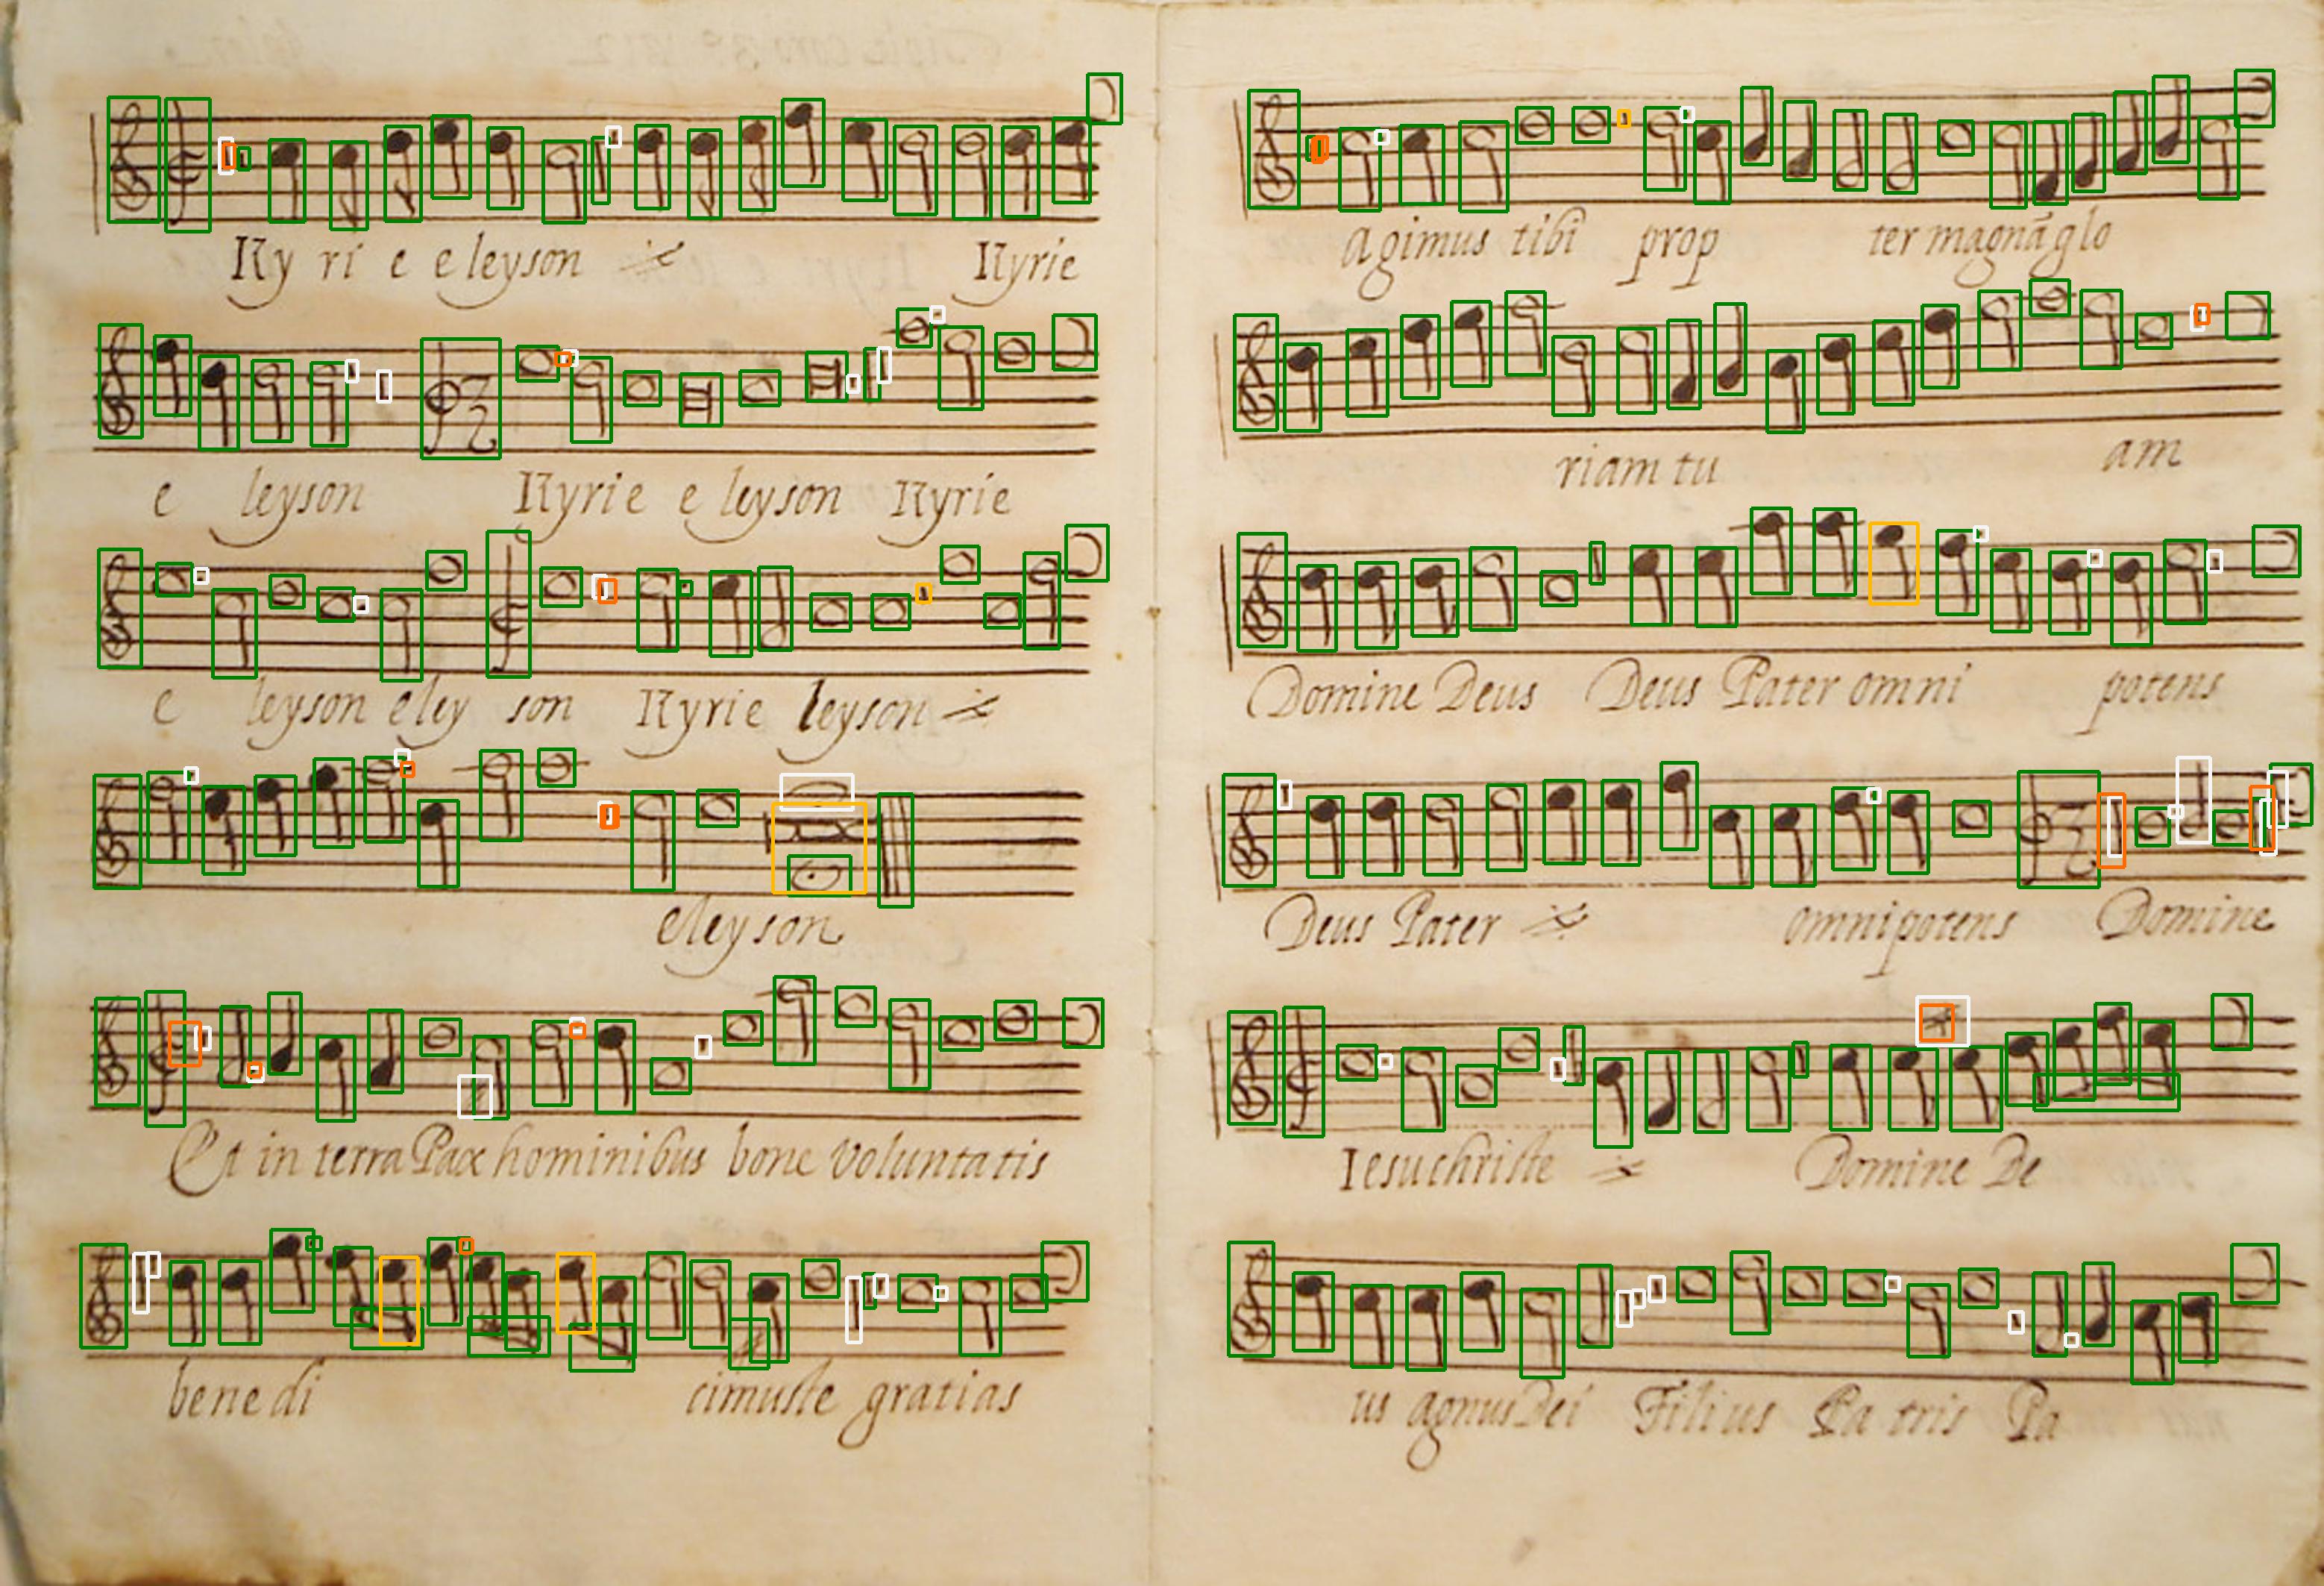 Ky ri e e leyson Kyrie
e leyson Kyrie e leyson Kyrie
e leyson eley son Kyrie leyson
eleyson
Et in terra Pax hominibus bone voluntatis
bene di cimuste gratias
agimus tibi prop ter magnã glo
riam tu am
Domine Deus Deus Pater omni potens
Deus Pater omnipotens Domine
Iesuchriste Domine De
us agnus Dei Filius Pa tris Pa